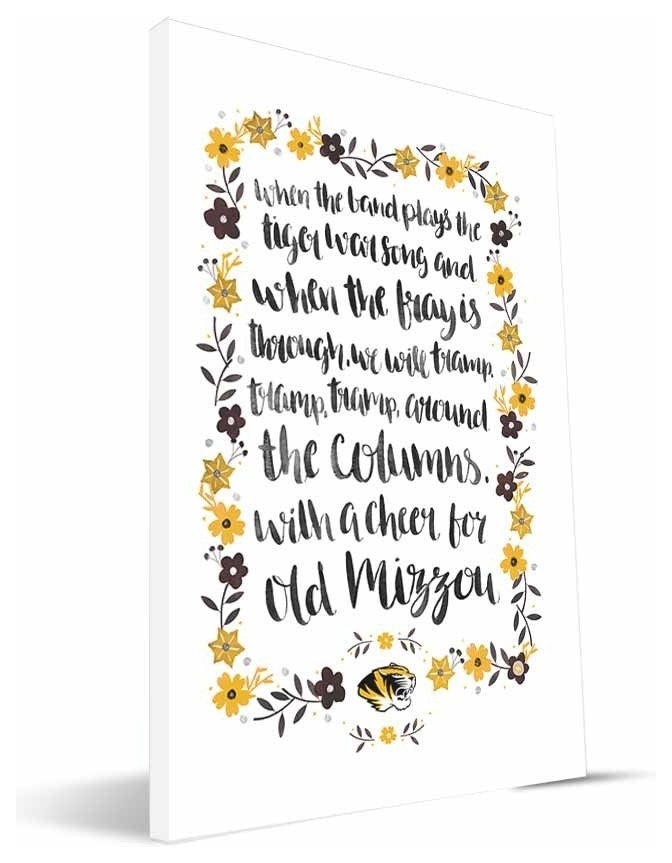 when the band plays the
tiger war song and
when the fray is
through, we will tramp,
tramp, tramp, around
the columns,
with a cheer for
old Mizzou